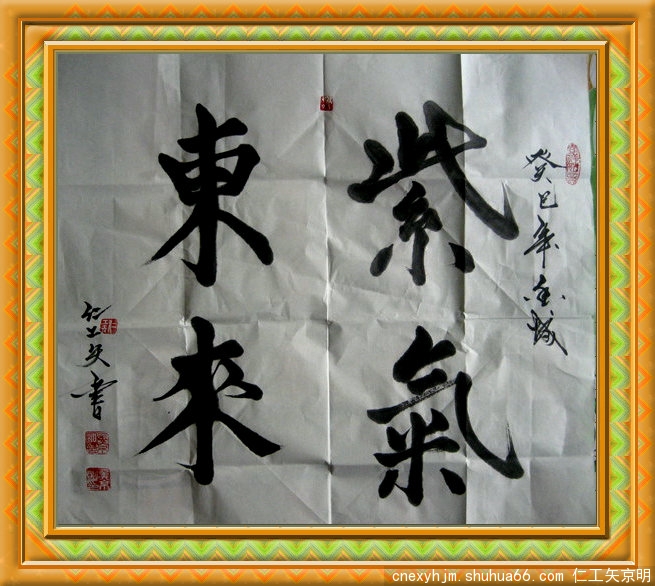 癸巳年金蛇
紫氣
東來
仁工矢書
cnexyhjm.shuhua66.com 仁工矢京明